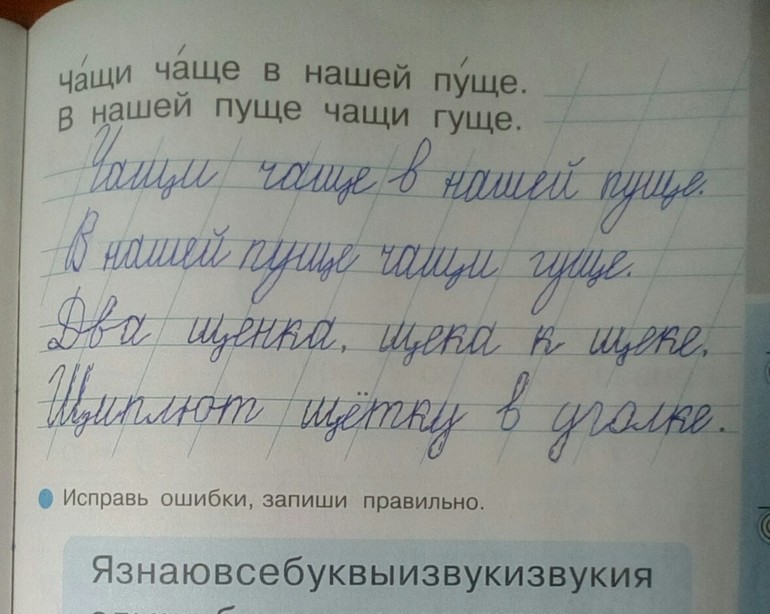 Ча́щи ча́ще в нашей пу́ще.
В нашей пуще чащи гуще.
Чащи чаще в нашей пуще.
В нашей пуще чащи гуще.
Два щенка, щека к щеке,
Щиплют щётку в уголке.
Исправь ошибки, запиши правильно.
Язнаювсебуквыизвукизвукия